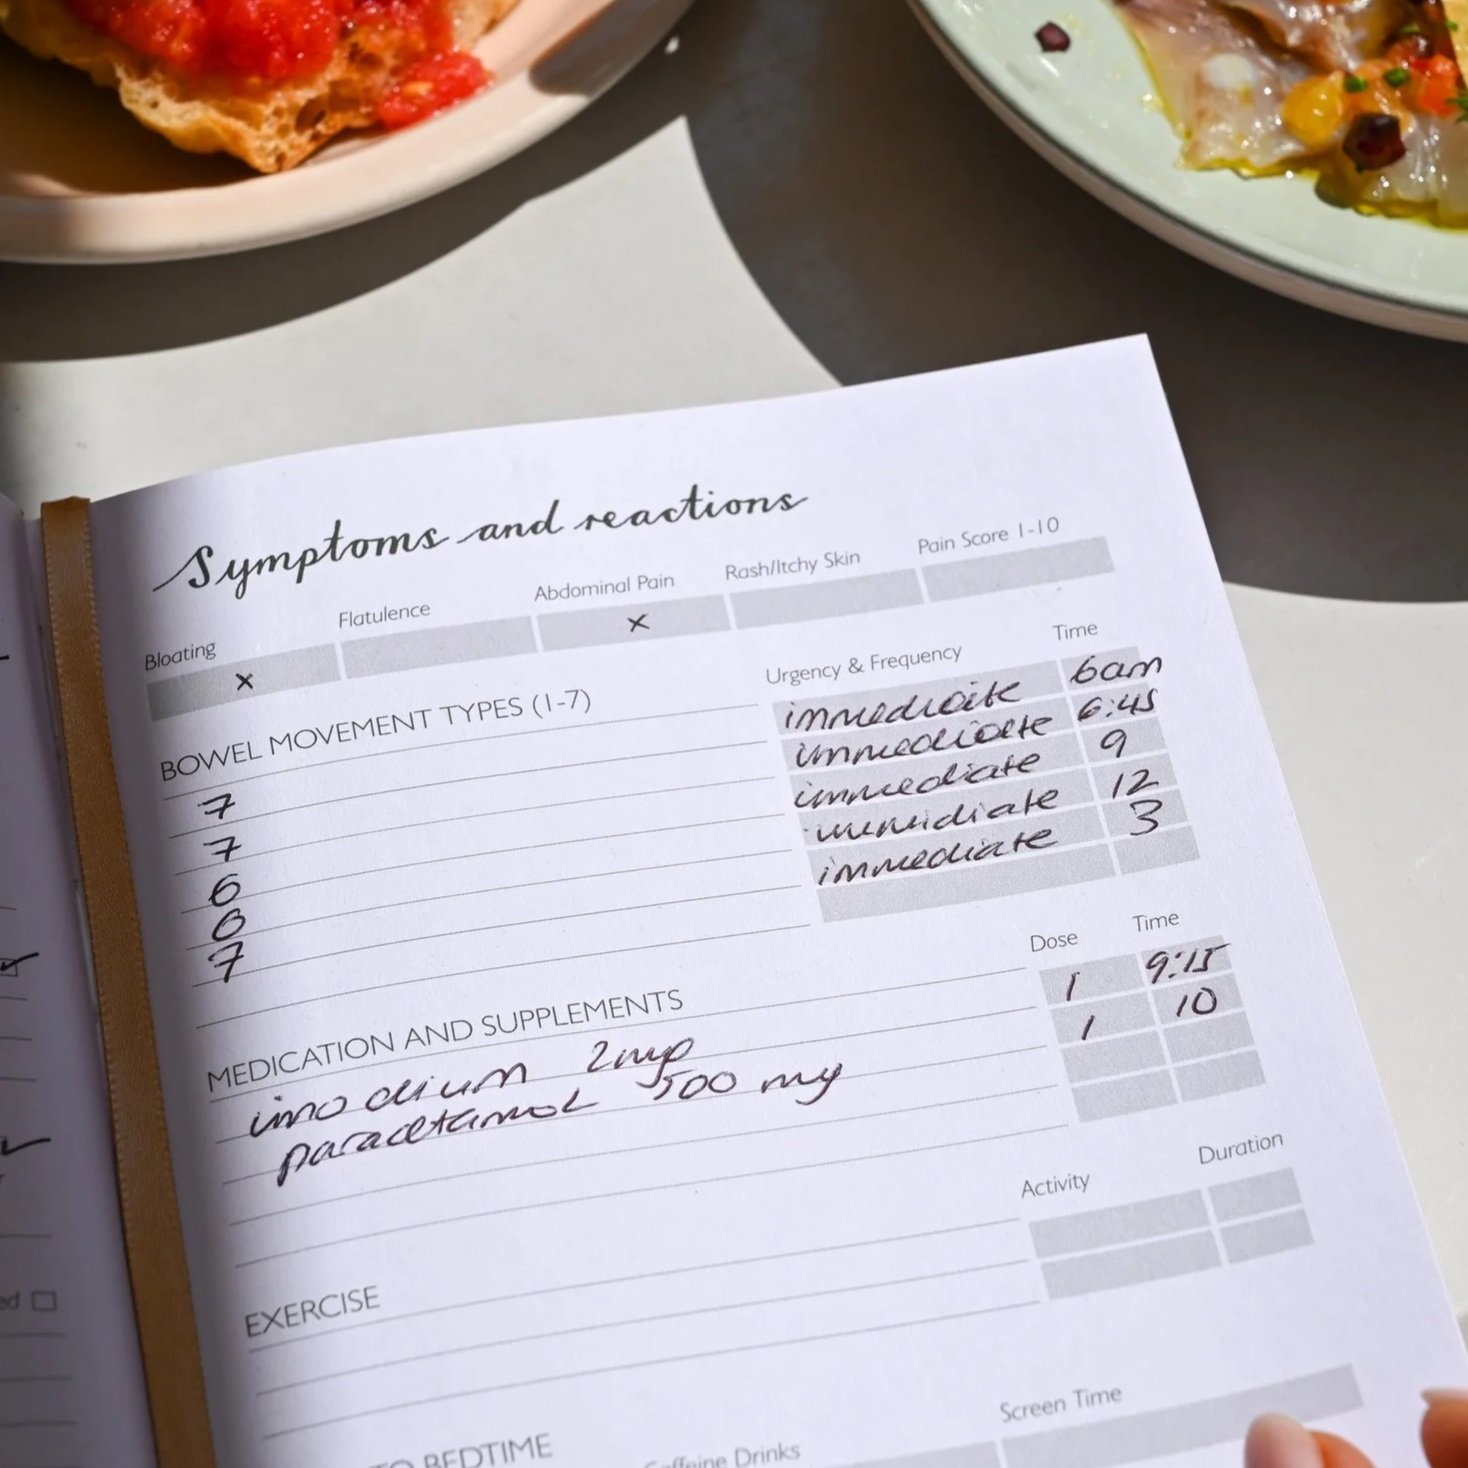 Symptoms and reactions
Bloating Flatulence Abdominal Pain Rash/Itchy Skin Pain Score 1-10
x x
BOWEL MOVEMENT TYPES (1-7) Urgency & Frequency Time
7 immediate 6am
7 immediate 6:45
6 immediate 9
6 immidiate 12
7 immediate 3
MEDICATION AND SUPPLEMENTS Dose Time
imodium 2mg 1 9:15
paracetamol 500 mg 1 10
EXERCISE Activity Duration
TO BEDTIME Caffeine Drinks Screen Time